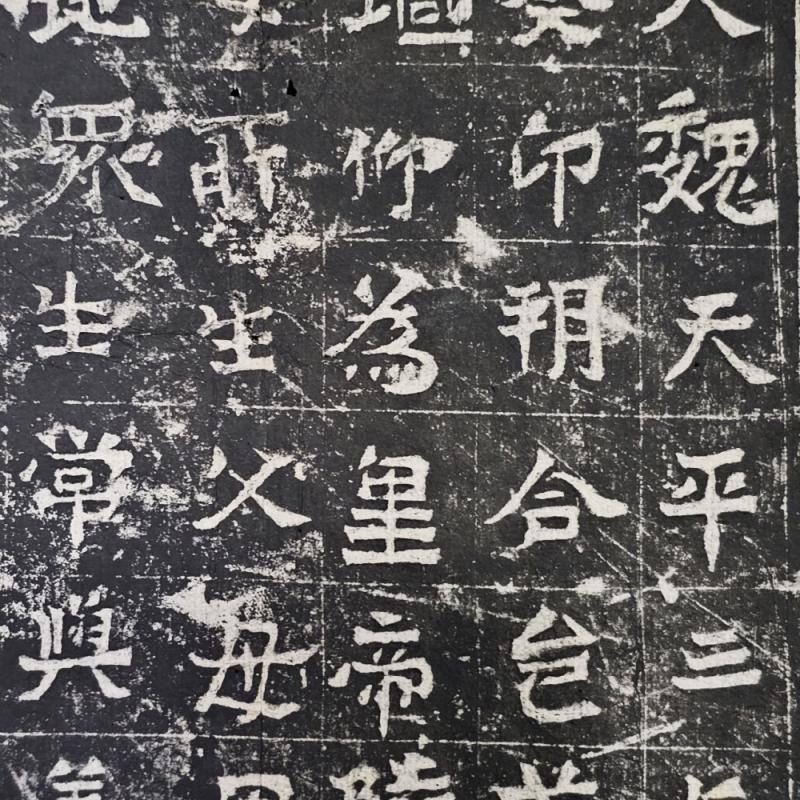 大魏天平三
癸卯朔合邑
仰為皇帝陛
所生父母
眾生常與